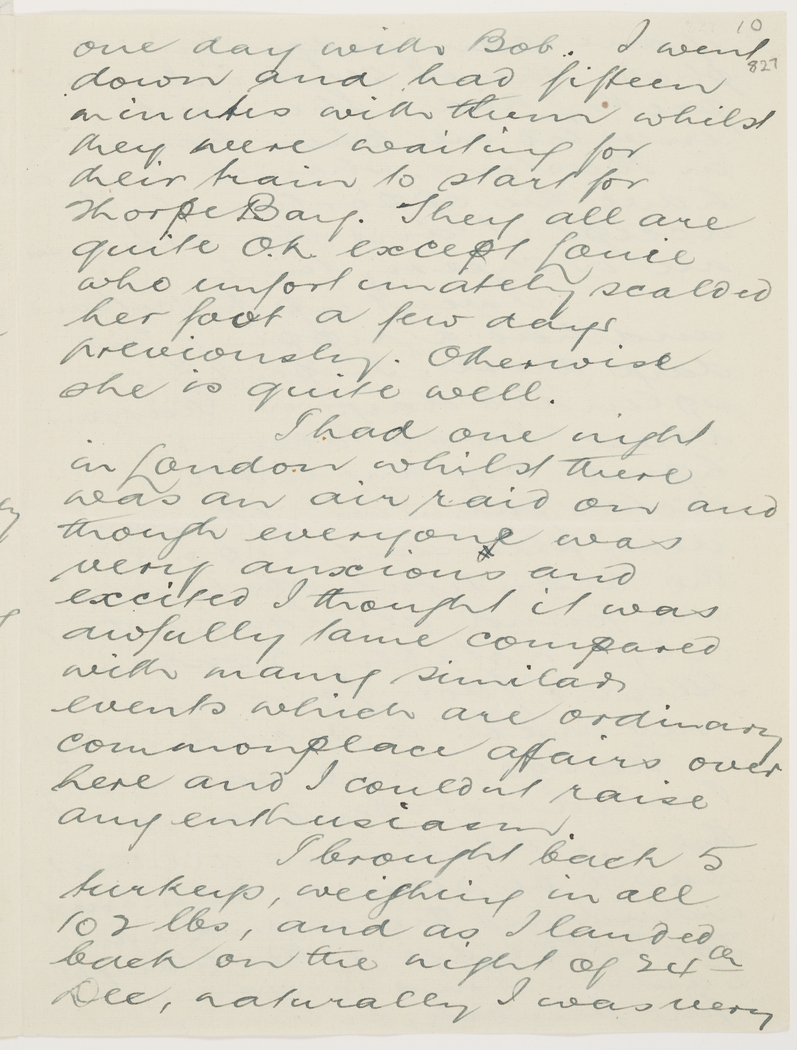 10
827
one day with Bob. I went
down and had fifteen
minutes with them whilst
they were waiting for
their train to start for
Thorpe Bay. They all are
quite O.K. except Louie
who unfortunately scalded
her foot a few days
previously. Otherwise
she is quite well.
I had one night
in London whilst there
was an air raid on and
though everyone was
very anxious and
excited I thought it was
awfully tame compared
with many similar
events which are ordinary
commonplace affairs over
here and I couldnt raise
any enthusiasm.
I brought back 5
turkeys, weighing in all
102 lbs, and as I landed
back on the night of 24th
Dec, naturally I was very